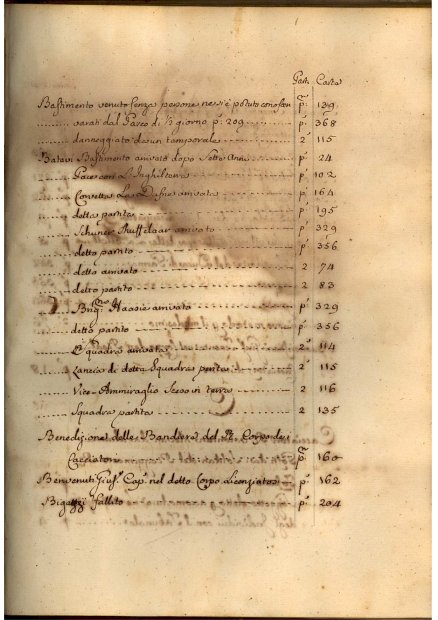 Part. Carta
Bastimento venuto senza persone ne si è potuto conoscer pª 139
varati dal Parco di Bgiorno pª 209 pª 368
danneggiato da un temporale 2ª 115
Batavi Bastimento arrivato dopo Sette Anni pª 24
Pace con l'Inghilterra pª 102
Corvetta La Dafne arrivata pª 164
detta partita pª 195
Schuner Ruffelaar arrivato pª 329
detto partito pª 356
detto arrivato 2 74
detto partito 2 83
Brigno Haasie arrivato pª 329
detto partito pª 356
Squadra arrivata 2ª 114
Lancia di detta Squadra 2ª 115
Vice-Ammiraglio Sceso in terra 2 116
Squadra partita 2 135
Benedizione delle Bandiere del R. Corpo dei
Cacciatori pª 160
Benvenuti Giuse. Cap. nel detto Corpo Licenziato pª 162
Bigazzi fallito pª 204